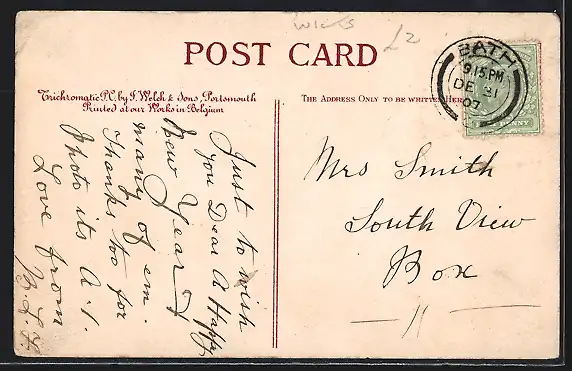 Wilts
£2
POST CARD
Trichromatic P.C. by J. Welch & Sons, Portsmouth
Printed at our Works in Belgium
THE ADDRESS ONLY TO BE WRITTEN HERE
BATH
9.15.PM
DE 31
07
PENNY
Just to wish
you Dear A Happy
New Year &
many of em.
Thanks too for
Photo its A.1.
Love from
Mrs Smith
South View
Box